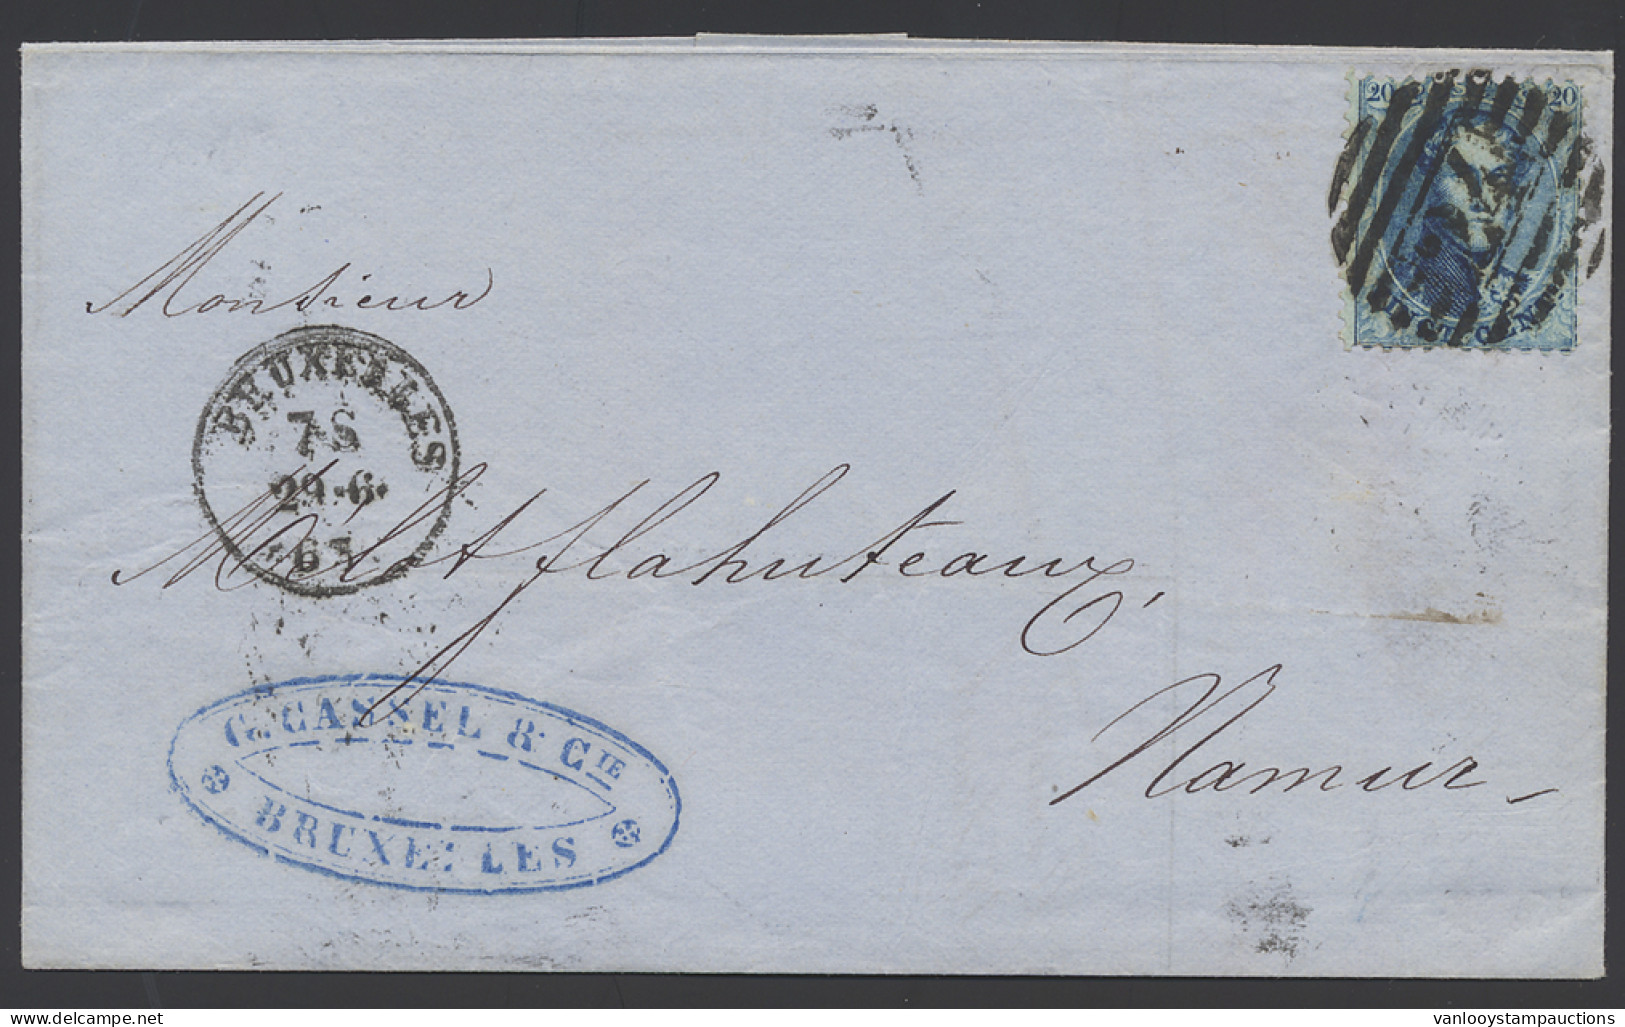 20 20
Monsieur
BRUXELLES
7·S
29·6·
63
flahuteaux
G. CASSEL & CIE
BRUXELLES
Namur
delcampe.net
vanlooystampauctions